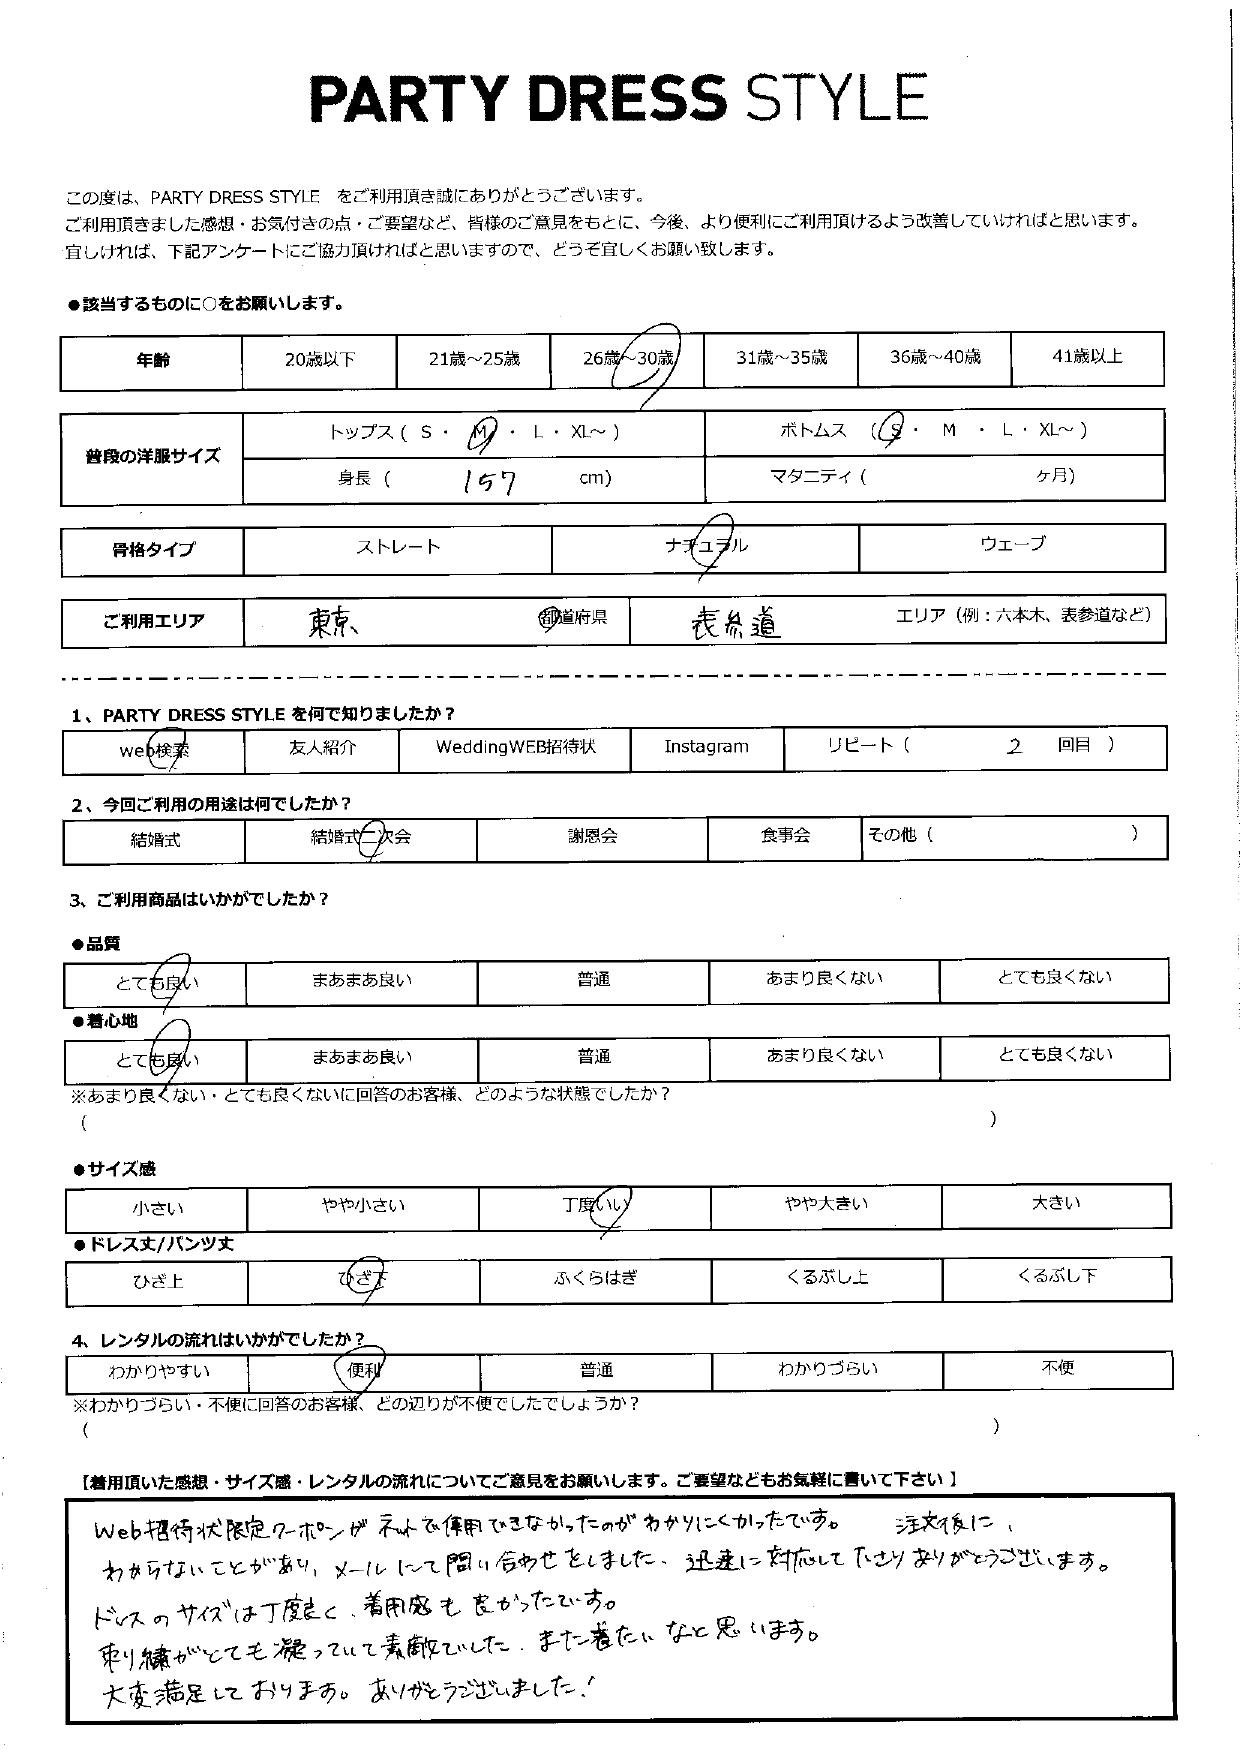 PARTY DRESS STYLE
この度は、PARTY DRESS STYLE をご利用頂き誠にありがとうございます。
ご利用頂きました感想・お気付きの点・ご要望など、皆様のご意見をもとに、今後、より便利にご利用頂けるよう改善していければと思います。
宜しければ、下記アンケートにご協力頂ければと思いますので、どうぞ宜しくお願い致します。
●該当するものに○をお願いします。
年齢 20歳以下 21歳～25歳 26歳～30歳 31歳～35歳 36歳～40歳 41歳以上
普段の洋服サイズ トップス ( S ・ M ・ L ・ XL～ ) ボトムス ( S ・ M ・ L ・ XL～ )
身長 ( 157 cm) マタニティ ( ヶ月)
骨格タイプ ストレート ナチュラル ウェーブ
ご利用エリア 東京 都道府県 表参道 エリア（例：六本木、表参道など）
1、PARTY DRESS STYLE を何で知りましたか？
web検索 友人紹介 WeddingWEB招待状 Instagram リピート ( 2 回目 )
2、今回ご利用の用途は何でしたか？
結婚式 結婚式二次会 謝恩会 食事会 その他 ( )
3、ご利用商品はいかがでしたか？
●品質
とても良い まあまあ良い 普通 あまり良くない とても良くない
●着心地
とても良い まあまあ良い 普通 あまり良くない とても良くない
※あまり良くない・とても良くないに回答のお客様、どのような状態でしたか？
( )
●サイズ感
小さい やや小さい 丁度いい やや大きい 大きい
●ドレス丈/パンツ丈
ひざ上 ひざ下 ふくらはぎ くるぶし上 くるぶし下
4、レンタルの流れはいかがでしたか？
わかりやすい 便利 普通 わかりづらい 不便
※わかりづらい・不便に回答のお客様、どの辺りが不便でしたでしょうか？
( )
【着用頂いた感想・サイズ感・レンタルの流れについてご意見をお願いします。ご要望などもお気軽に書いて下さい】
Web招待状限定クーポンがネットで使用できなかったのがわかりにくかったです。 注文後に、
わからないことがあり、メールにて問い合わせをしました。迅速に対応して下さりありがとうございます。
ドレスのサイズは丁度良く、着用感も良かったです。
刺繍がとても凝っていて素敵でした。また着たいなと思います。
大変満足しております。ありがとうございました！